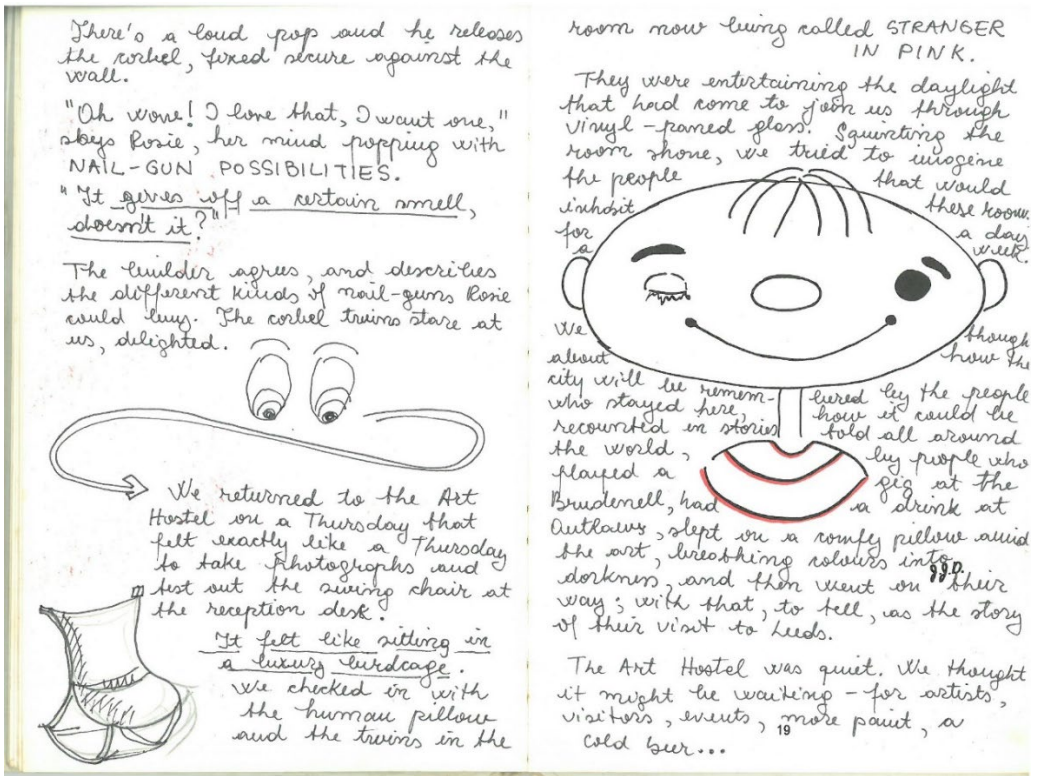 There's a loud pop and he releases
the corbel, fixed secure against the
wall.
"Oh wow! I love that, I want one,"
says Rosie, her mind popping with
NAIL-GUN POSSIBILITIES.
"It gives off a certain smell,
doesn't it?"
The builder agrees, and describes
the different kinds of nail-guns Rosie
could buy. The corbel twins stare at
us, delighted.
We returned to the Art
Hostel on a Thursday that
felt exactly like a Thursday
to take photographs and
test out the swing chair at
the reception desk.
It felt like sitting in
a luxury birdcage.
We checked in with
the human pillow
and the twins in the
room now being called STRANGER
IN PINK.
They were entertaining the daylight
that had come to join us through
vinyl-paned glass. Squinting the
room shone, we tried to imagine
the people that would
inhabit these rooms
for a day
a week.
We though
about how the
city will be remem- bered by the people
who stayed here, how it could be
recounted in stories told all around
the world, by people who
played a gig at the
Brudenell, had a drink at
Outlaws, slept on a comfy pillow amid
the art, breathing colours into
darkness, and then went on their
way; with that, to tell, as the story
of their visit to Leeds.
J.J.D.
The Art Hostel was quiet. We thought
it might be waiting - for artists,
visitors, events, more paint, a
cold beer...
19